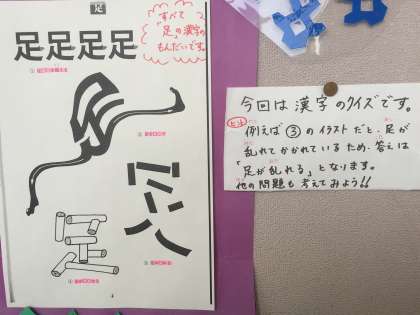 足
足足足足
すべて
「足」の漢字の
もんだいです。
今回は漢字のクイズです。
ヒント
例えば③のイラストだと、足が
乱れてかかれているため、答えは
「足が乱れる」となります。
他の問題も考えてみよう!!